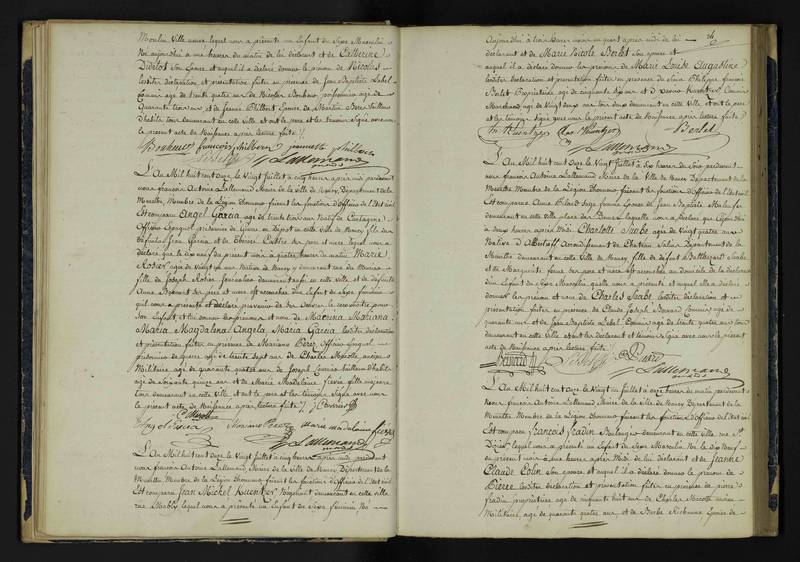 Moselin Ville
Né aujourd'hui à une heure du matin de lui déclarant et de Catherine
Didelot Son Epouse et auquel il a déclaré donner le prénom de Nicolas
lesdites déclaration et présentation faites en présence de Jean Baptiste Lebel
Commis agé de trente quatre ans de Nicolas Bonheur
quarante trois ans et de François Philbert Epouse de Martin
d'habits tous demeurant en cette Ville et ont le pere et les témoins Signé avec nous
le présent acte de Naissance après lecture faite
Bonheur françois philbert
Lallemand
L'An Mil huit cent onze le Vingt Juillet à cinq heures après midi pardevant
nous françois Antoine Lallemand Maire de la Ville de Nancy, Département de la
Meurthe, Membre de la Légion d'honneur faisant les fonctions d'Officier de l'Etat civil
Est comparu Angel Garcia, agé de trente trois ans Natif de Cartagene
Officier Espagnol prisonnier de Guerre en Dépot en cette Ville de Nancy, fils des
défunts Jean Garcia et de Therese Castre ses pere et mere lequel nous a
déclaré que le dix neuf du présent mois à quatre heures du matin Marie
Rosier agée de Vingt six ans Native de Nancy y demeurant rue du
fille de Joseph Rosier Journalier demeurant aussi en cette Ville et de défunte
Anne ses pere et mere est accouchée d'un Enfant du Sexe féminin
qu'il nous a présenté et déclaré provenir de ses Oeuvres le reconnaitre pour
Son Enfant, et lui donner les prénoms et nom de Macrina Mariana
Maria Magdalena Angela Maria Garcia, lesdites déclaration
et présentation faites en présence de Mariano Perez, Officier Espagnol
prisonnier de Guerre, agé de trente Sept ans de Charles Micolle, ancien
Militaire, agé de quarante quatre ans de Joseph Cuvrier tailleur d'habits
agé de soixante quinze ans et de Marie Madelaine fievée fille majeure
tous demeurant en cette Ville, et ont le pere et les témoins Signé avec nous
le présent acte de Naissance après lecture faite
C. Micolle J. Cuvrier
Angel Garcia Mariano Perez marie madelaine fievée
Lallemand
L'An Mil huit cent onze le Vingt Juillet à cinq heures après midi pardevant
nous françois Antoine Lallemand Maire de la Ville de Nancy Département de la
Meurthe, Membre de la Légion d'honneur faisant les fonctions d'Officier de l'Etat civil
Est comparu Jean Michel Kuentzer Négociant demeurant en cette ville
rue Stably lequel nous a présenté un Enfant du Sexe féminin Né
Aujourd'hui à trois heures moins un quart après midi de lui
déclarant et de Marie Nicole Berlet Son épouse et
auquel il a déclaré donner les prénoms de Marie Louise Augustine
lesdites déclaration et présentation faites en présence de Philippe françois
Berlet Propriétaire, agé de cinquante six ans et d' Xavier Kuentzer Commis
Marchand, agé de Vingt deux ans tous deux demeurant en cette Ville et ont le pere
et les témoins Signé avec nous le présent acte de Naissance après lecture faite
Berlet
Lallemand
L'An Mil huit cent onze le Vingt Juillet à Six heures du Soir pardevant
nous françois Antoine Lallemand Maire de la Ville de Nancy Département de la
Meurthe Membre de la Légion d'honneur faisant les fonctions d'Officier de l'Etat civil
Est comparue Anne Sage femme Epouse de Jean Baptiste
demeurant en cette ville place des Dames laquelle nous a déclaré que Aujourd'hui
à deux heures après Midi Charlotte Saabe agée de Vingt quatre ans
Native d'Albertoff Arrondissement de Chateau Salins Département de la
Meurthe demeurant en cette Ville de Nancy, fille de défunt Balthazard Saabe
et de Marguerite ses pere et mere est accouchée au domicile de la déclarante
d'un Enfant du Sexe Masculin qu'elle nous a présenté et auquel elle a déclaré
donner les prénom et nom de Charles Saabe lesdites déclaration et
présentation faites en présence de Claude Joseph Bernard Commis agé de
quarante ans et de Jean Baptiste Lebel Commis agé de trente quatre ans tous
demeurant en cette Ville, et ont les déclarante et témoins Signé avec nous le présent
acte de Naissance après lecture faite
Bernard
Lallemand
L'An Mil huit cent onze le Vingt un Juillet à onze heures du matin pardevant
nous françois Antoine Lallemand Maire de la Ville de Nancy, Département de la
Meurthe Membre de la Légion d'honneur faisant les fonctions d'Officier de l'Etat civil
Est comparu François Fradin Boulanger demeurant en cette ville, rue St
Dizier lequel nous a présenté un Enfant du Sexe Masculin Né le Dix Neuf
du présent mois à une heure après Midi de lui déclarant et de Jeanne
Claude Colin Son épouse et auquel il a déclaré donner le prénom de
Pierre lesdites déclaration et présentation faites en présence de pierre
fradin propriétaire agé de cinquante huit ans de Charles Micolle ancien
Militaire, agé de quarante quatre ans, et de Barbe Richonne, Epouse de